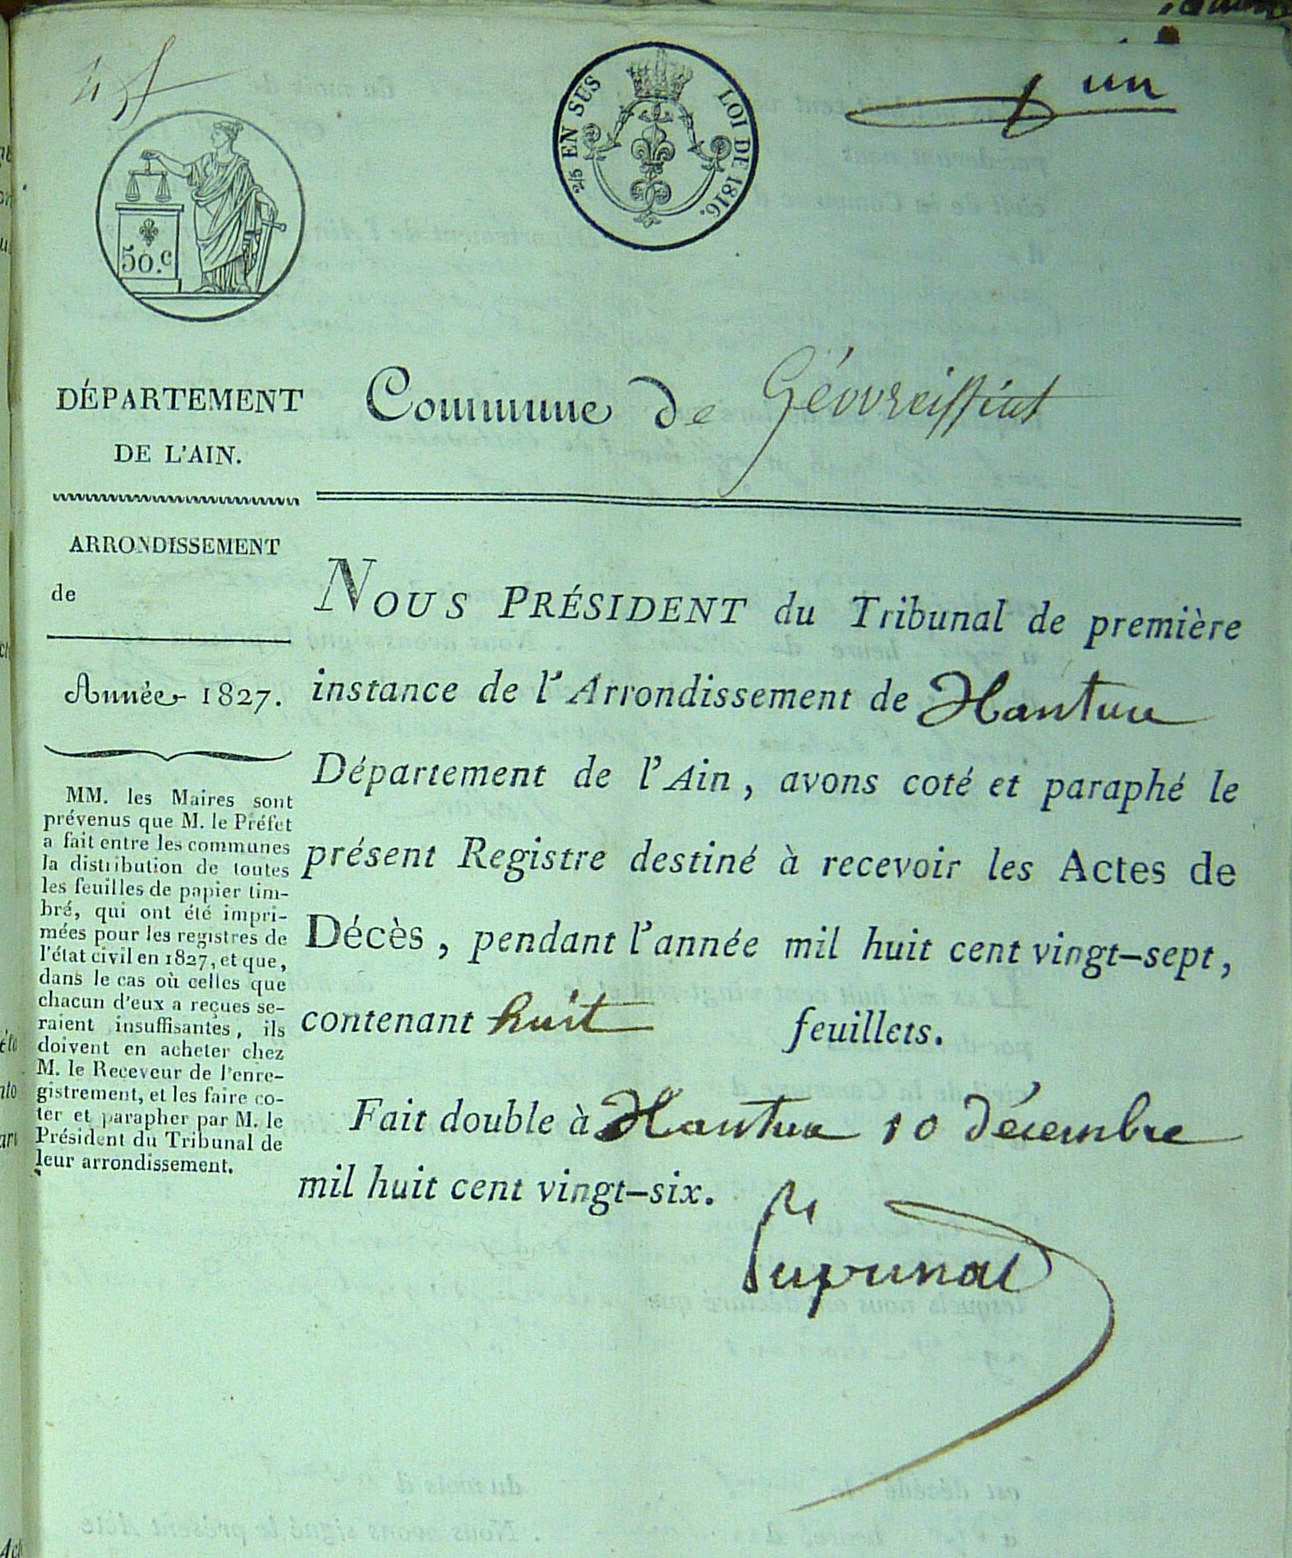 un
2/5 EN SUS
LOI DE 1816.
50.c
DÉPARTEMENT
DE L'AIN.
Commune de Géovreissiat
ARRONDISSEMENT
de
Année 1827.
MM. les Maires sont
prévenus que M. le Préfet
a fait entre les communes
la distribution de toutes
les feuilles de papier tim-
bré, qui ont été impri-
mées pour les registres de
l'état civil en 1827, et que,
dans le cas où celles que
chacun d'eux a reçues se-
raient insuffisantes, ils
doivent en acheter chez
M. le Receveur de l'enre-
gistrement, et les faire co-
ter et parapher par M. le
Président du Tribunal de
leur arrondissement.
NOUS PRÉSIDENT du Tribunal de première
instance de l'Arrondissement de Nantua
Département de l'Ain, avons coté et paraphé le
présent Registre destiné à recevoir les Actes de
Décès, pendant l'année mil huit cent vingt-sept,
contenant huit feuillets.
Fait double à Nantua 10 décembre
mil huit cent vingt-six.